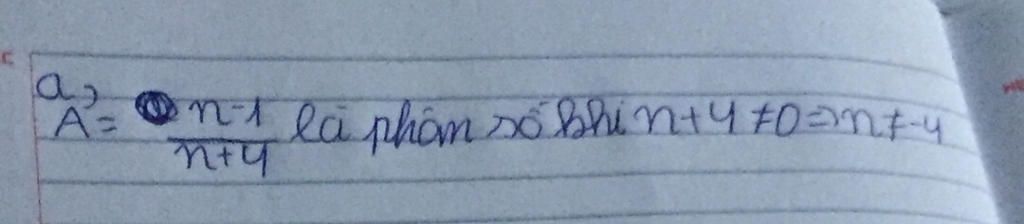 a,
A = n-1/n+4 là phân số khi n+4 ≠ 0 => n ≠ -4